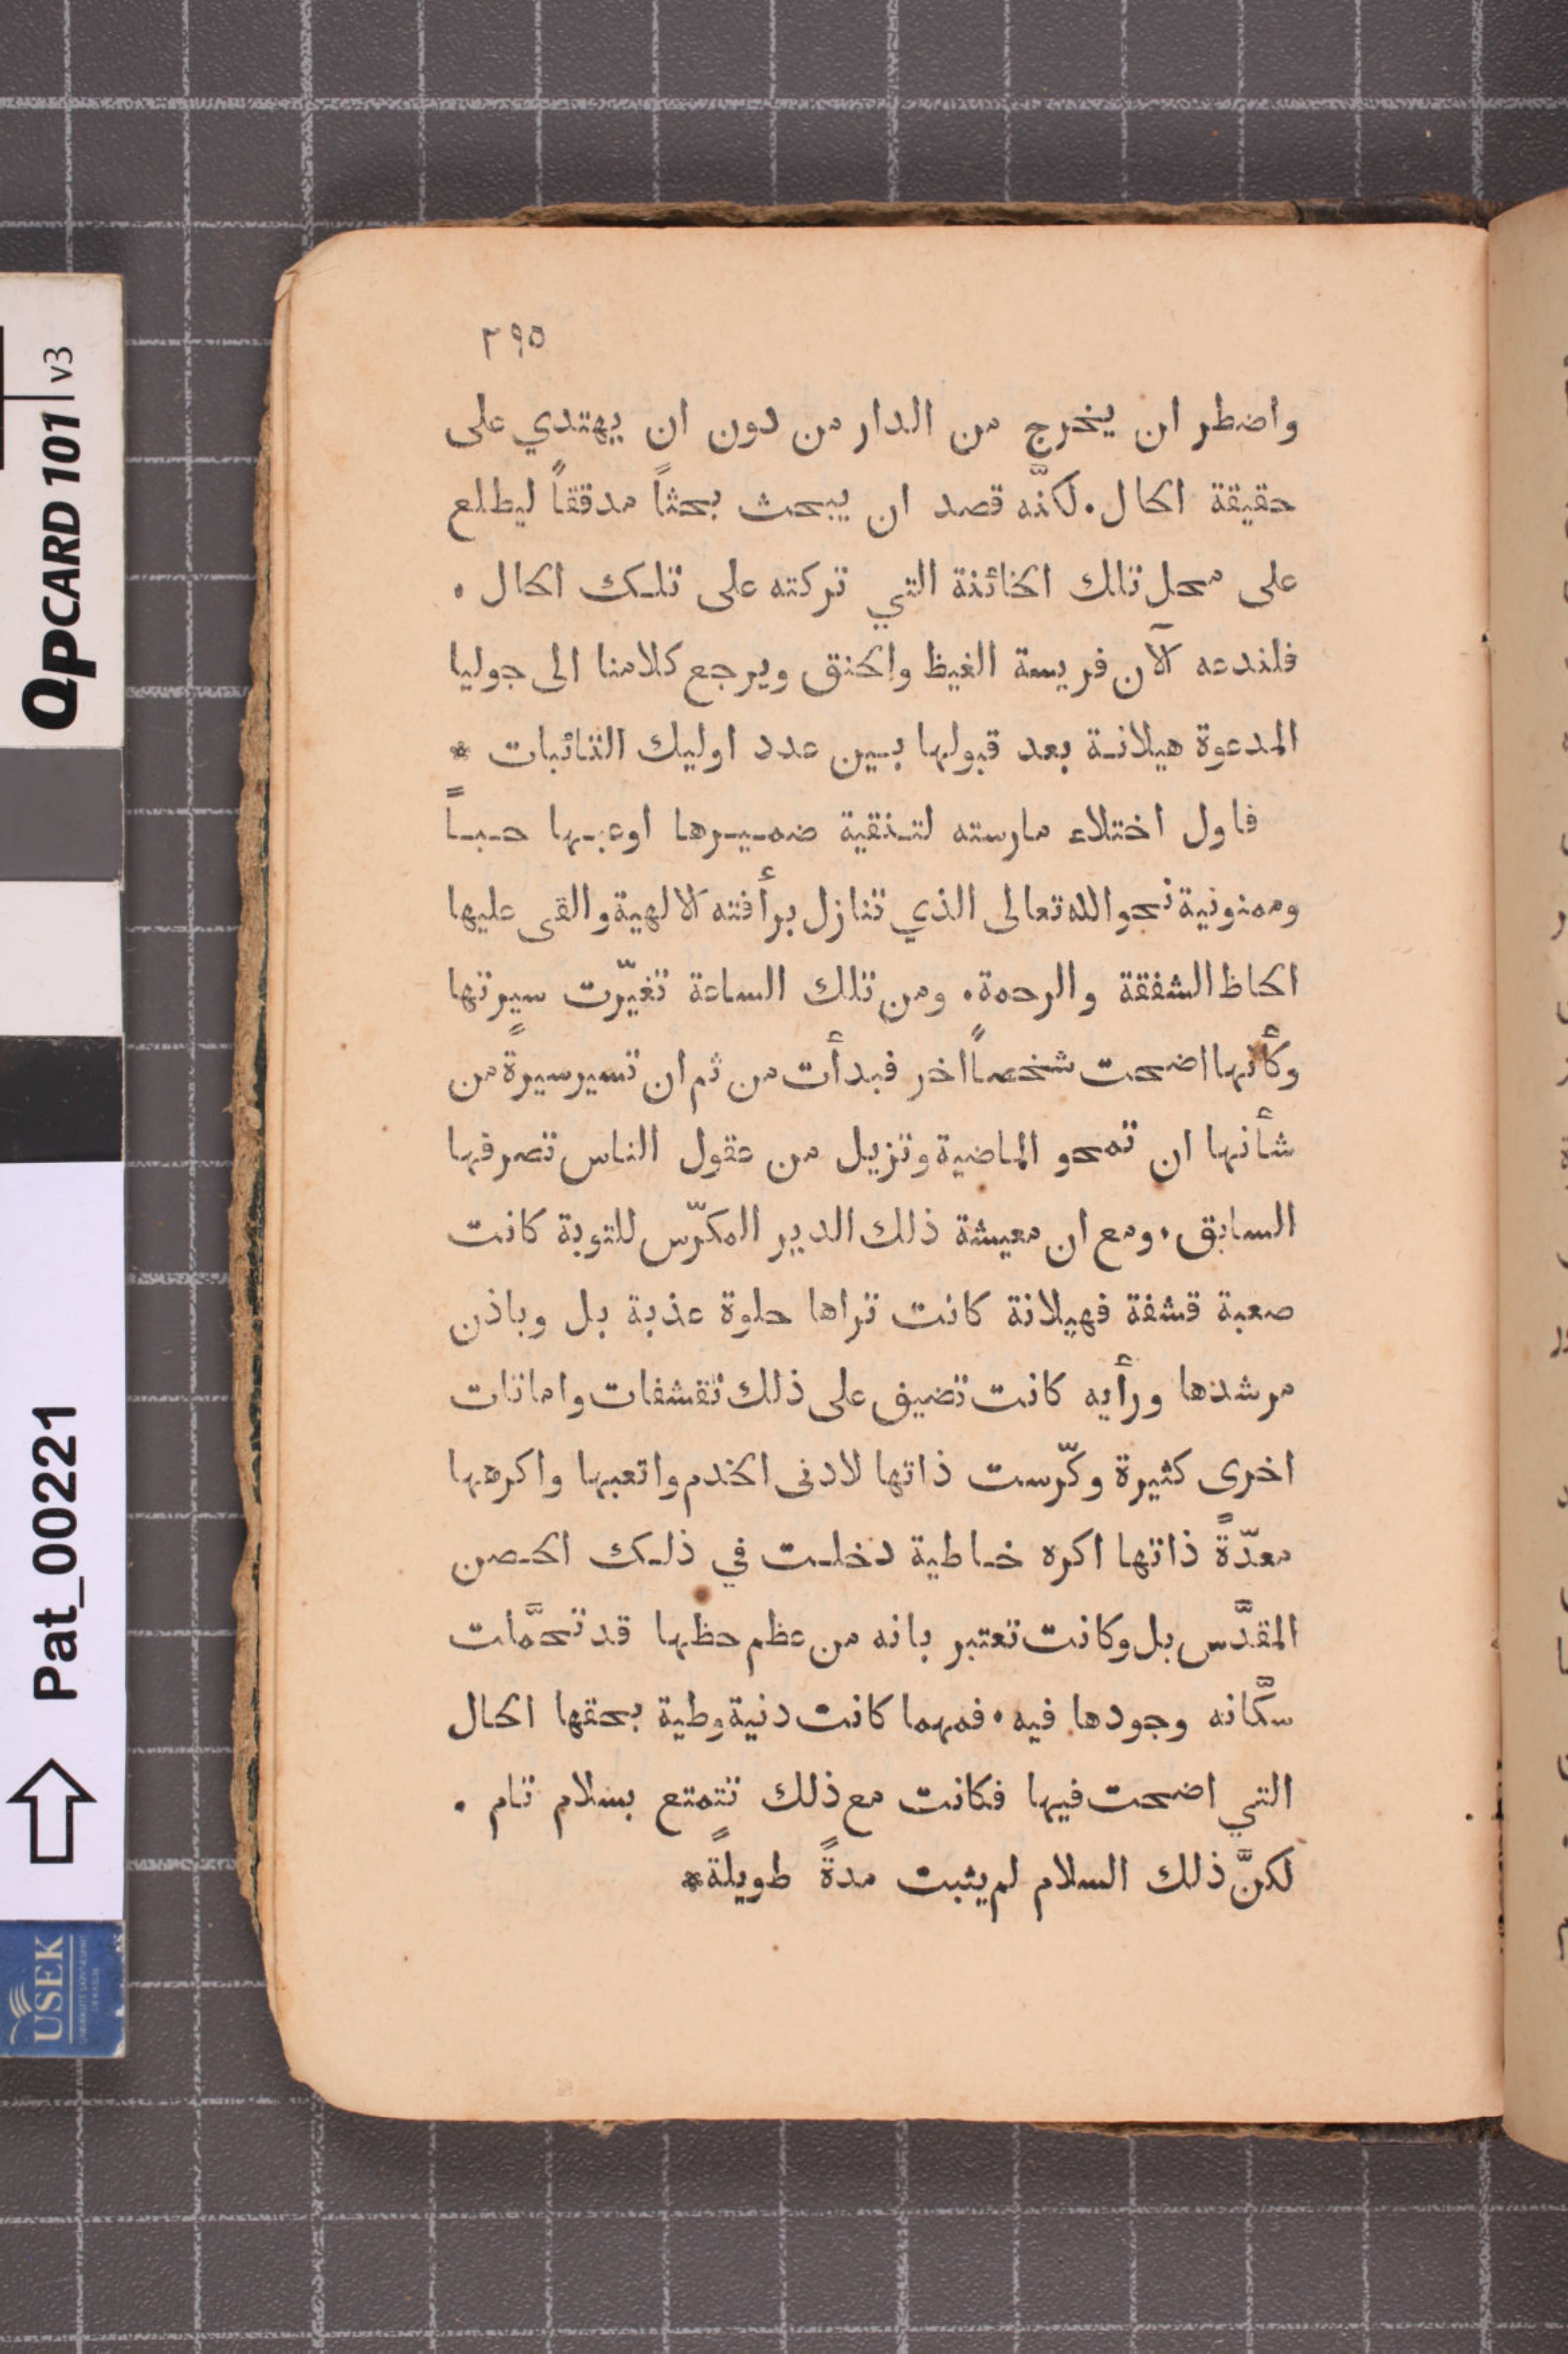 ٢٩٥
واضطر ان يخرج من الدار من دون ان يهتدي على
حقيقة الحال. لكنَّه قصد ان يبحث بحثاً مدققاً ليطلع
على محل تلك الخائنة التي تركته على تلك الحال.
فلندعه الآن فريسة الغيظ والحنق ويرجع كلامنا الى جوليا
المدعوة هيلانة بعد قبولها بين عدد اوليك التائبات *
فاول اختلاء مارسته لتنقية ضميرها اوعبها حباً
وممنونية نحو الله تعالى الذي تنازل برأفته الالهية والقى عليها
الحاظ الشفقة والرحمة. ومن تلك الساعة تغيّرت سيرتها
وكأنها اضحت شخصاً اخر فبدأت من ثم ان تسير سيرةً من
شأنها ان تمحو الماضية وتزيل من عقول الناس تصرفها
السابق. ومع ان معيشة ذلك الدير المكرّس للتوبة كانت
صعبة قشفة فهيلانة كانت تراها حلوة عذبة بل وباذن
مرشدها ورأيه كانت تضيف على ذلك تقشفات واماتات
اخرى كثيرة وكرّست ذاتها لادنى الخدم واتعبها واكرهها
معدّةً ذاتها اكره خاطية دخلت في ذلك الحصن
المقدَّس بل وكانت تعتبر بانه من عظم حظها قد تحمَّلت
سكّانه وجودها فيه. فمهما كانت دنية وطية بحقها الحال
التي اضحت فيها فكانت مع ذلك تتمتع بسلام تام.
لكنَّ ذلك السلام لم يثبت مدةً طويلةً*
QPCARD 101 v3
Pat_00221
USEK